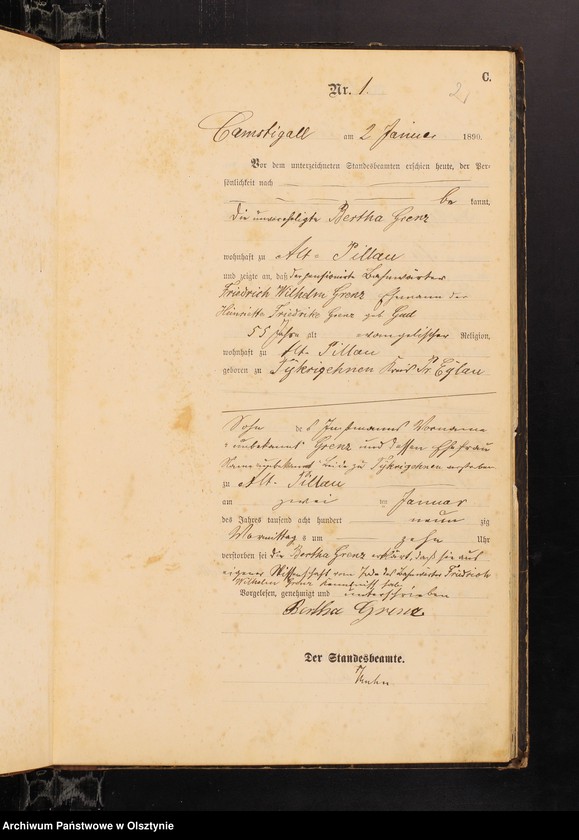 C.
Nr. 1.
2
Camstigall am 2 Januar 1890.
Vor dem unterzeichneten Standesbeamten erschien heute, der Per-
sönlichkeit nach
be kannt,
die unvereheligte Bertha Grenz
wohnhaft zu Alt-Pillau
und zeigte an, daß der pensionirte Bahnwärter
Friedrich Wilhelm Grenz Ehemann der
Heinriette Friedrike Grenz geb
55 Jahre alt evangelischer Religion,
wohnhaft zu Alt-Pillau
geboren zu Kreis Pr. Eylau
Sohn des Instmanns Vorname
unbekannt Grenz und dessen Ehefrau
Name unbekannt beide zu verstorben
zu Alt-Pillau
am zwei ten Januar
des Jahres tausend acht hundert neun zig
Vormittag s um zehn Uhr
verstorben sei die Bertha Grenz erklärt, daß sie aus
eigener Wissenschaft vom Tode des Bahnwärter Friedrich
Wilhelm Grenz Kenntniß habe
Vorgelesen, genehmigt und unterschrieben
Bertha Grenz
Der Standesbeamte.
Archiwum Państwowe w Olsztynie